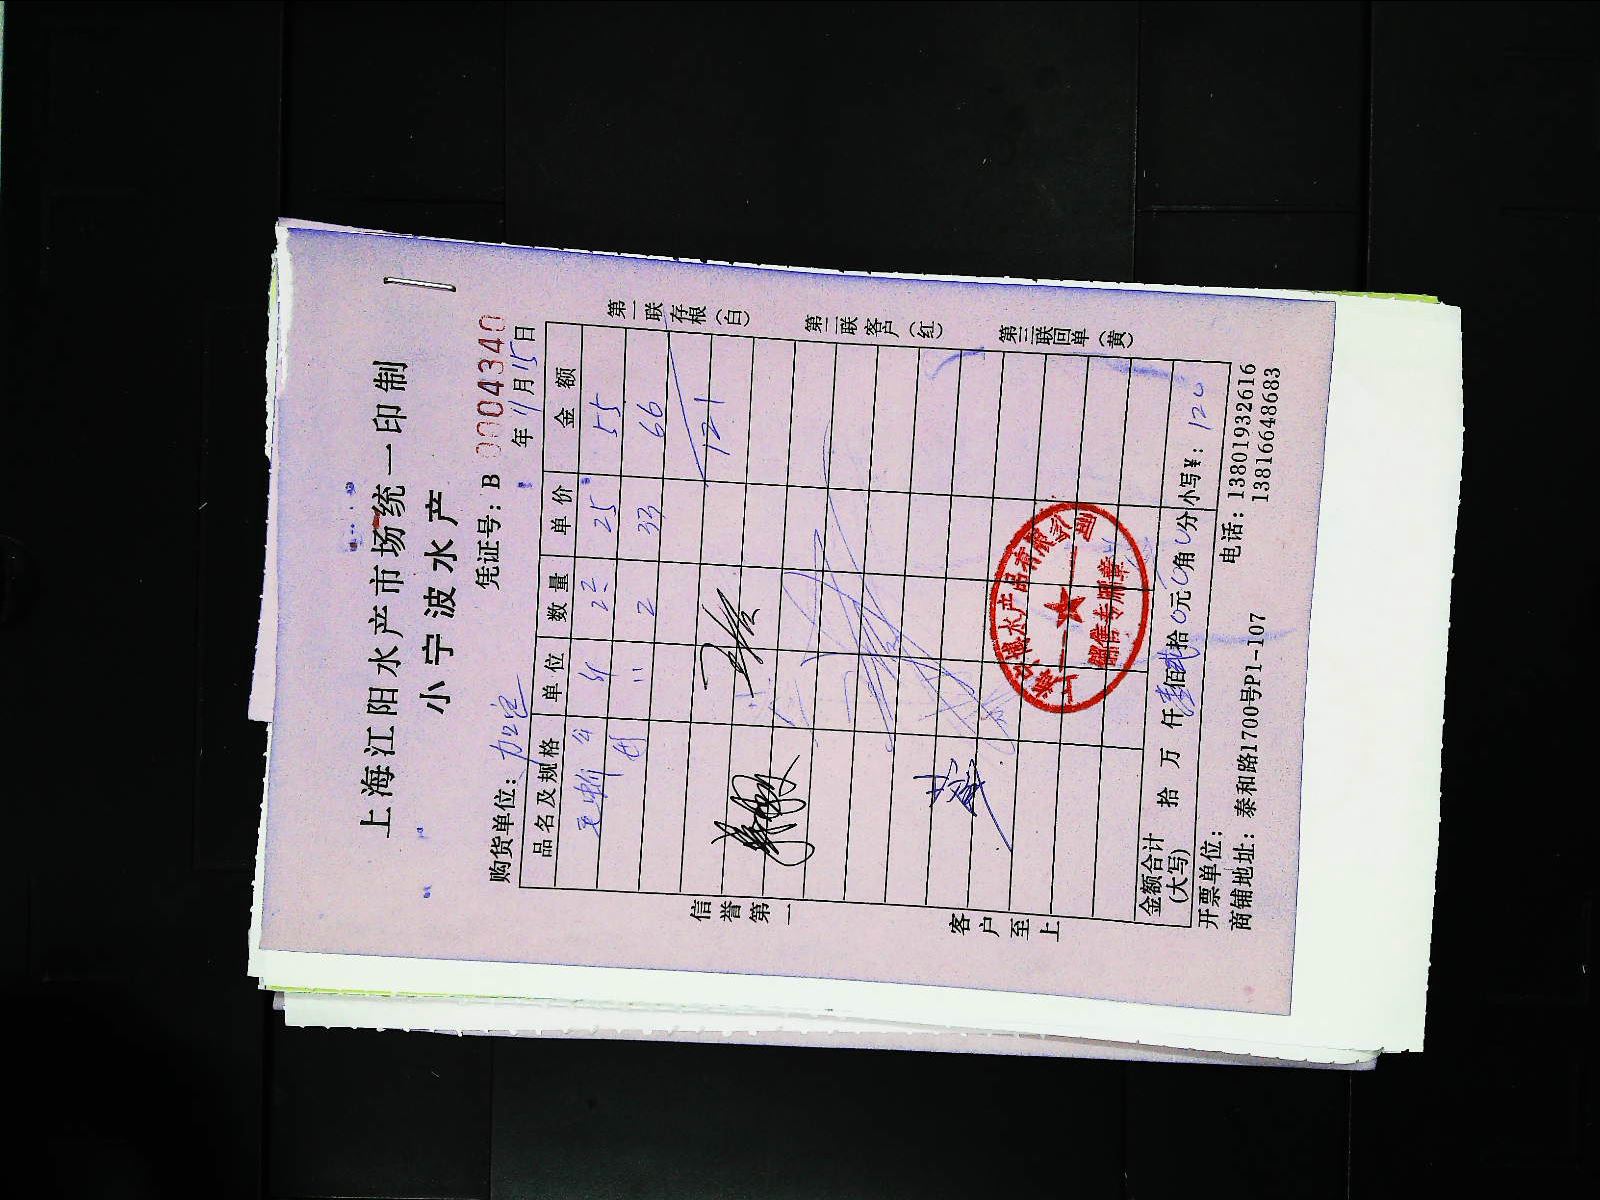 上海江阳水产市场统一印制
小宁波水产
凭证号：B 0004340
购货单位： 年 11月15日
品名及规格 单位 数量 单价 金额
25 55
2 33 66
121
第一联存根（白）
第二联客户（红）
第三联回单（黄）
信誉第一
客户至上
水产品有限公司
销售专用章
金额合计（大写） 拾 万 仟 佰 拾 元 角 分 小写¥： 120
开票单位：
商铺地址：泰和路1700号P1-107 电话：13801932616
13816648683